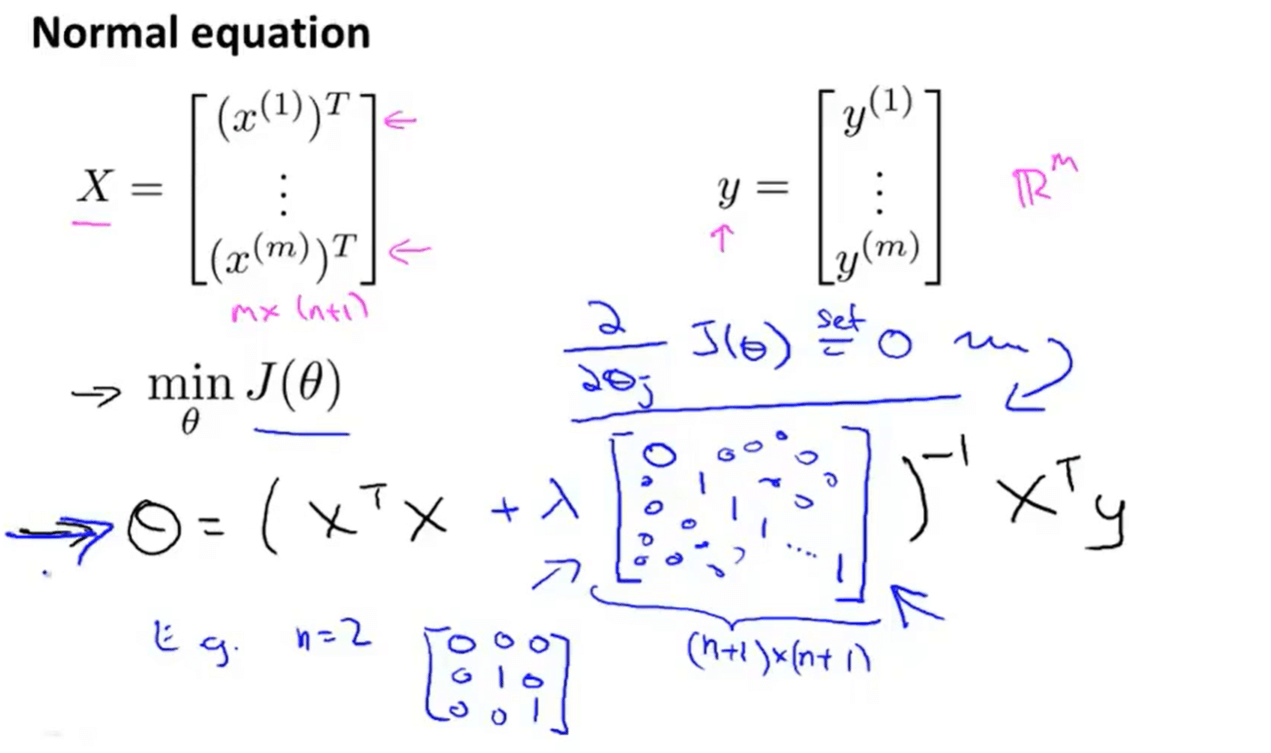 Normal equation
X = [ (x^(1))^T ⋮ (x^(m))^T ] ← ←
m x (n+1)
y = [ y^(1) ⋮ y^(m) ] ℝ^m
↑
∂/∂θj J(θ) set = 0
→ min_θ J(θ)
→ θ = ( X^T X + λ [ 0 0 0 0 0 1 0 0 1 0 0 0 1 0 0 0 .... 1 ] )^-1 X^T y
(n+1)x(n+1)
E.g. n=2 [ 0 0 0
0 1 0
0 0 1 ]